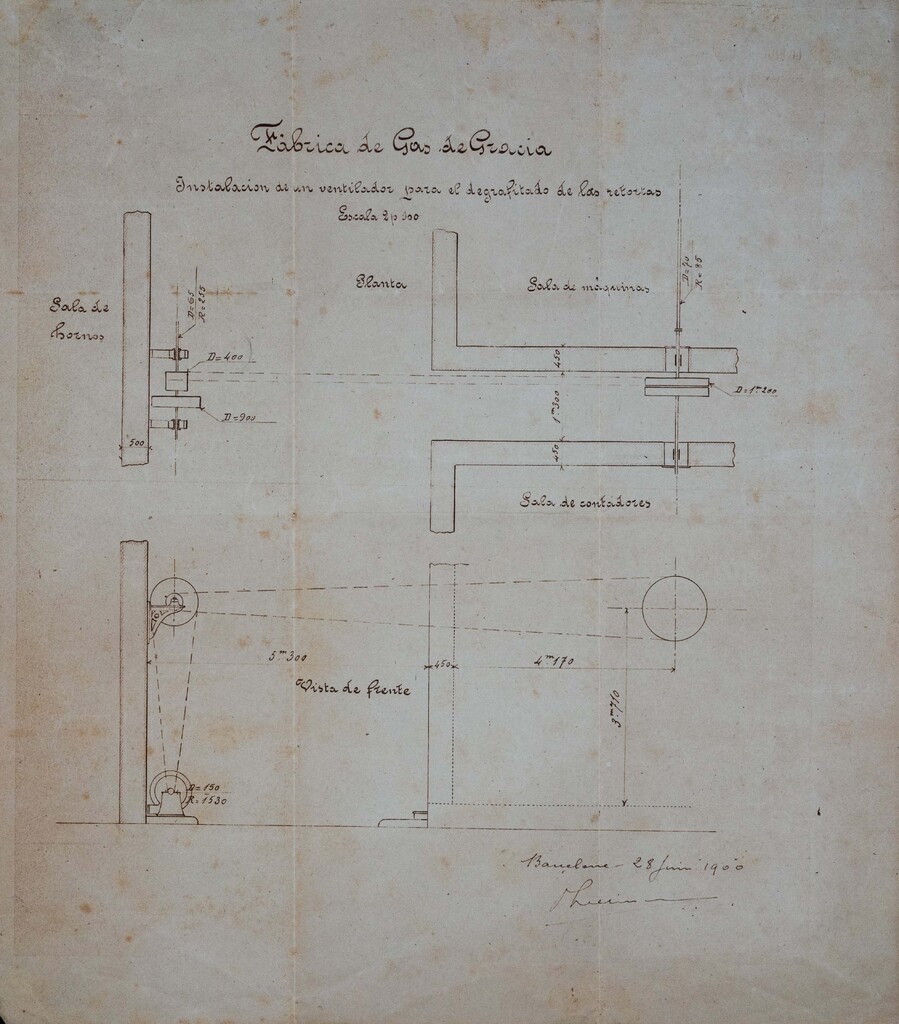 Fábrica de Gas de Gracia
Instalacion de un ventilador para el degrafitado de las retortas
Escala 2 p 100
Planta
Sala de máquinas
Sala de
hornos
D=65
R=255
D=70
R=85
D=400
D=900
500
450
1m300
450
D=1m200
Sala de contadores
5m300
450
4m170
Vista de frente
3m710
D=150
R=1530
Barcelone 28 Juin 1900